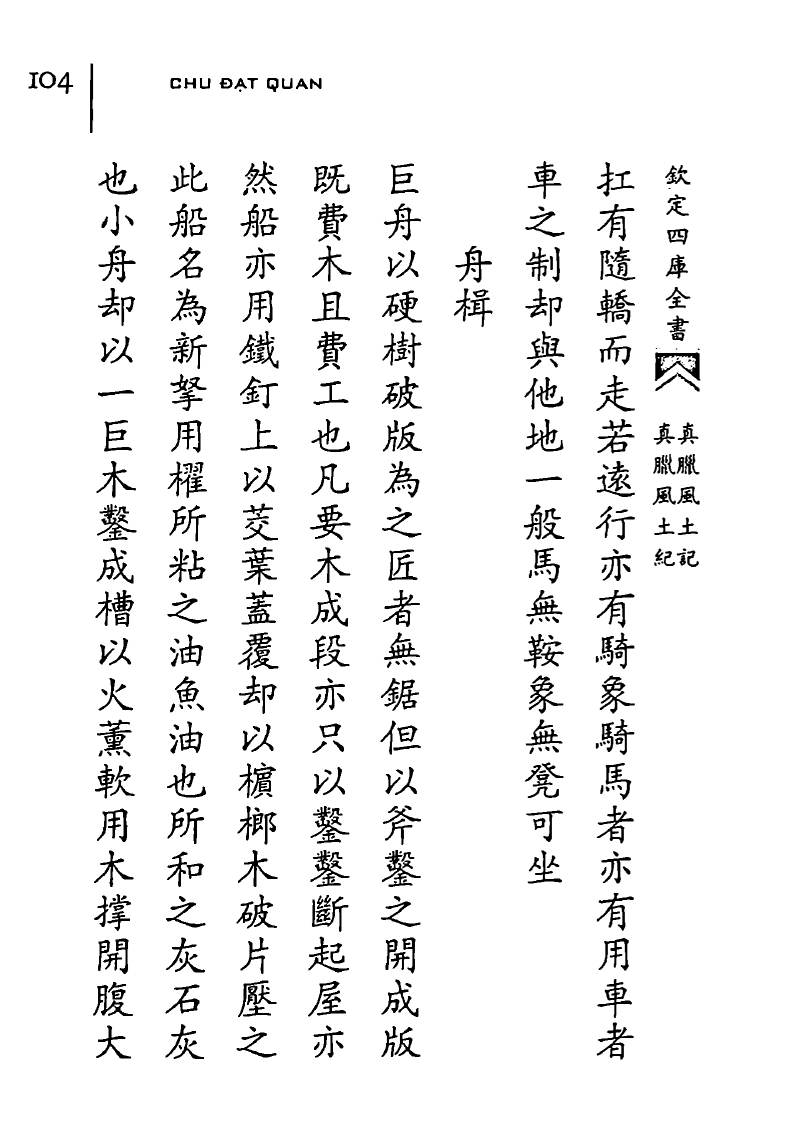 104
CHU ĐẠT QUAN
欽定四庫全書
真臘風土記
真臘風土紀
扛有隨轎而走若遠行亦有騎象騎馬者亦有用車者
車之制却與他地一般馬無鞍象無凳可坐
舟楫
巨舟以硬樹破版為之匠者無鋸但以斧鑿之開成版
既費木且費工也凡要木成段亦只以鑿鑿斷起屋亦
然船亦用鐵釘上以茭葉蓋覆却以檳榔木破片壓之
此船名為新拏用櫂所粘之油魚油也所和之灰石灰
也小舟却以一巨木鑿成槽以火薰軟用木撑開腹大